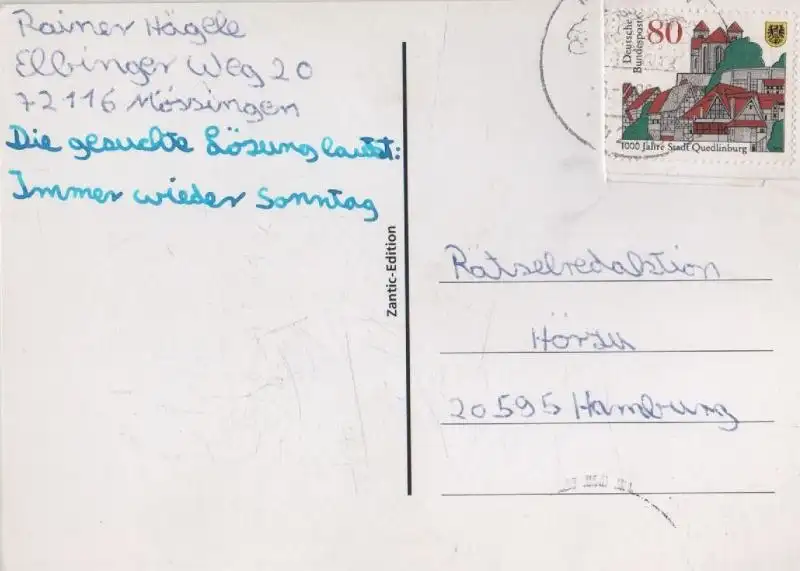 Rainer Hägele
Elbinger Weg 20
72116 Mössingen
Die gesuchte Lösung lautet:
Immer wieder Sonntag
Zantic-Edition
Deutsche
Bundespost
80
1000 Jahre Stadt Quedlinburg
Rätselredaktion
Hörzu
20595 Hamburg